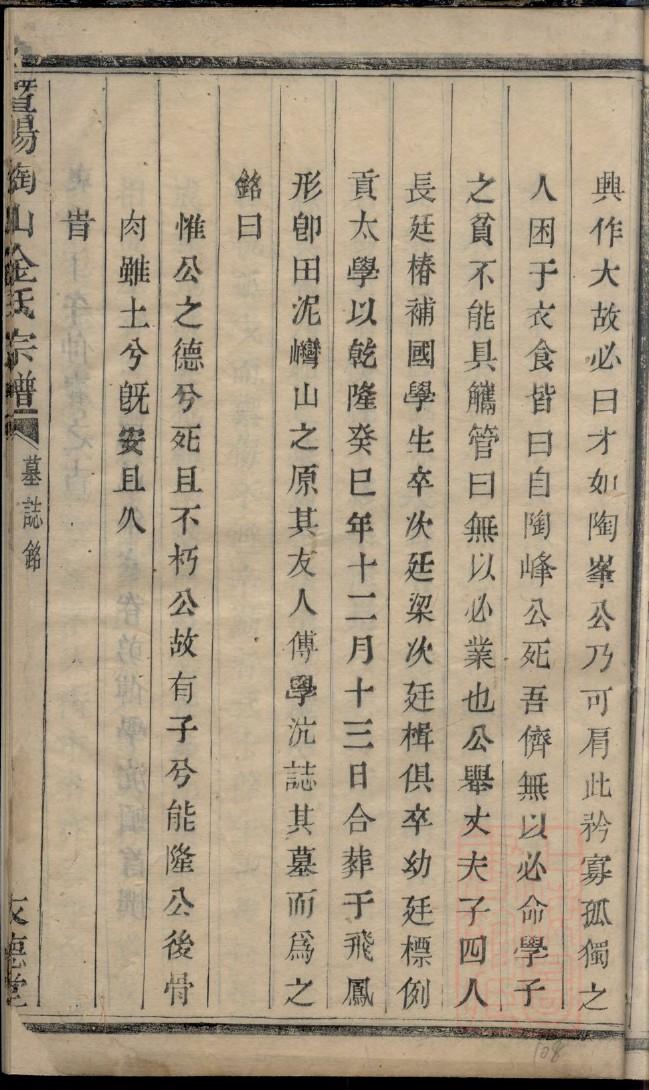 興作大故必曰才如陶峯公乃可肩此矜寡孤獨之
人困于衣食皆曰自陶峰公死吾儕無以必命學子
之貧不能具觿管曰無以必業也公舉丈夫子四人
長廷椿補國學生卒次廷梁次廷楫俱卒幼廷標例
貢太學以乾隆癸巳年十二月十三日合葬于飛鳳
形卽田泥巒山之原其友人傅學沆誌其墓而爲之
銘曰
惟公之德兮死且不朽公故有子兮能隆公後骨
肉雖土兮旣安且久
旹
暨陽陶山金氏宗譜
墓誌銘
友德堂
108